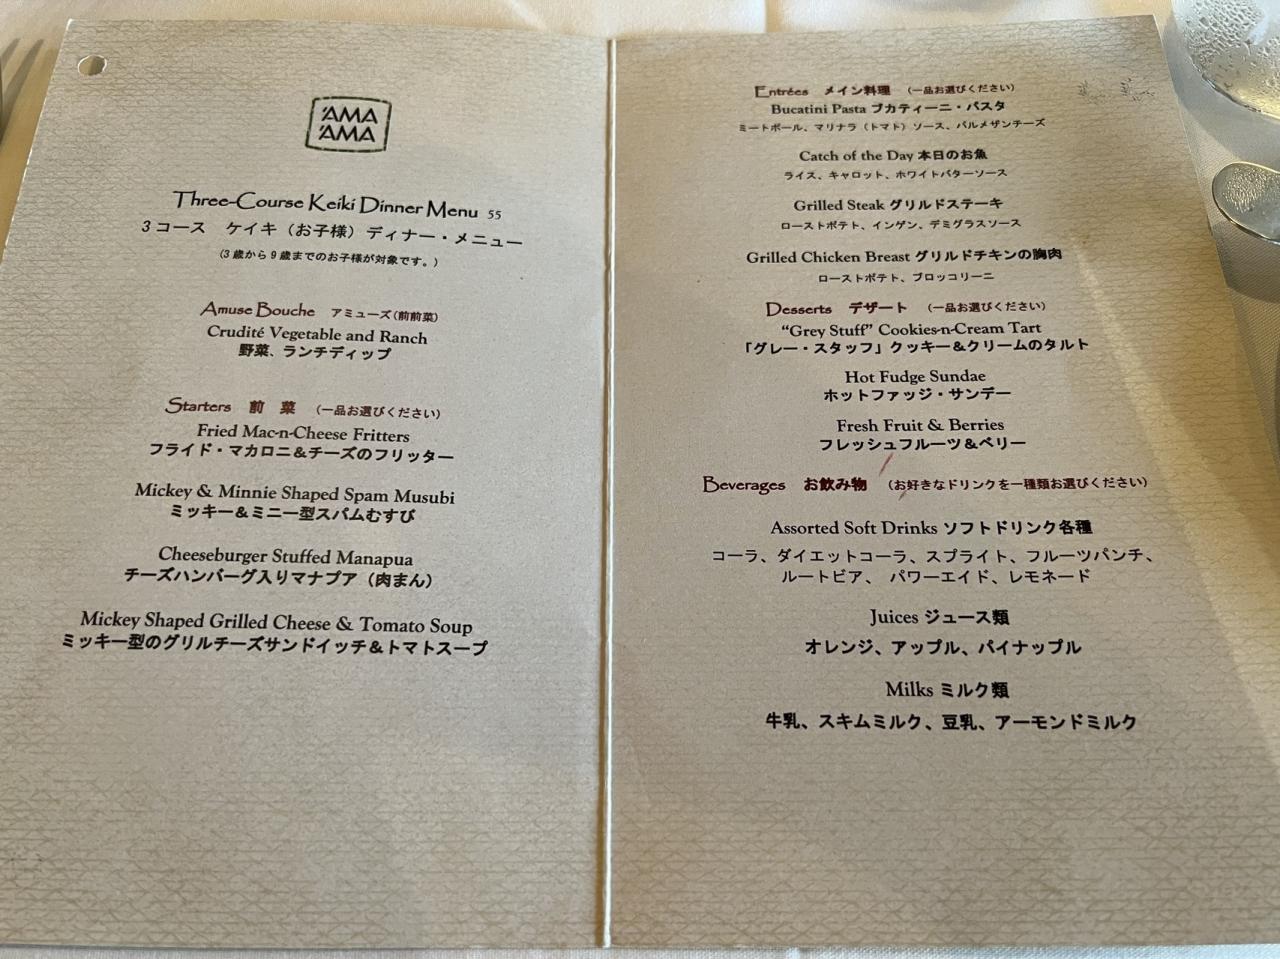 'AMA
'AMA
Three-Course Keiki Dinner Menu 55
3コース ケイキ（お子様）ディナー・メニュー
（3歳から9歳までのお子様が対象です。）
Amuse Bouche アミューズ（前前菜）
Crudité Vegetable and Ranch
野菜、ランチディップ
Starters 前 菜 （一品お選びください）
Fried Mac-n-Cheese Fritters
フライド・マカロニ＆チーズのフリッター
Mickey & Minnie Shaped Spam Musubi
ミッキー＆ミニー型スパムむすび
Cheeseburger Stuffed Manapua
チーズハンバーグ入りマナプア（肉まん）
Mickey Shaped Grilled Cheese & Tomato Soup
ミッキー型のグリルチーズサンドイッチ＆トマトスープ
Entrées メイン料理 （一品お選びください）
Bucatini Pasta ブカティーニ・パスタ
ミートボール、マリナラ（トマト）ソース、パルメザンチーズ
Catch of the Day 本日のお魚
ライス、キャロット、ホワイトバターソース
Grilled Steak グリルドステーキ
ローストポテト、インゲン、デミグラスソース
Grilled Chicken Breast グリルドチキンの胸肉
ローストポテト、ブロッコリーニ
Desserts デザート （一品お選びください）
“Grey Stuff” Cookies-n-Cream Tart
「グレー・スタッフ」クッキー＆クリームのタルト
Hot Fudge Sundae
ホットファッジ・サンデー
Fresh Fruit & Berries
フレッシュフルーツ＆ベリー
Beverages お飲み物 （お好きなドリンクを一種類お選びください）
Assorted Soft Drinks ソフトドリンク各種
コーラ、ダイエットコーラ、スプライト、フルーツパンチ、
ルートビア、 パワーエイド、レモネード
Juices ジュース類
オレンジ、アップル、パイナップル
Milks ミルク類
牛乳、スキムミルク、豆乳、アーモンドミルク